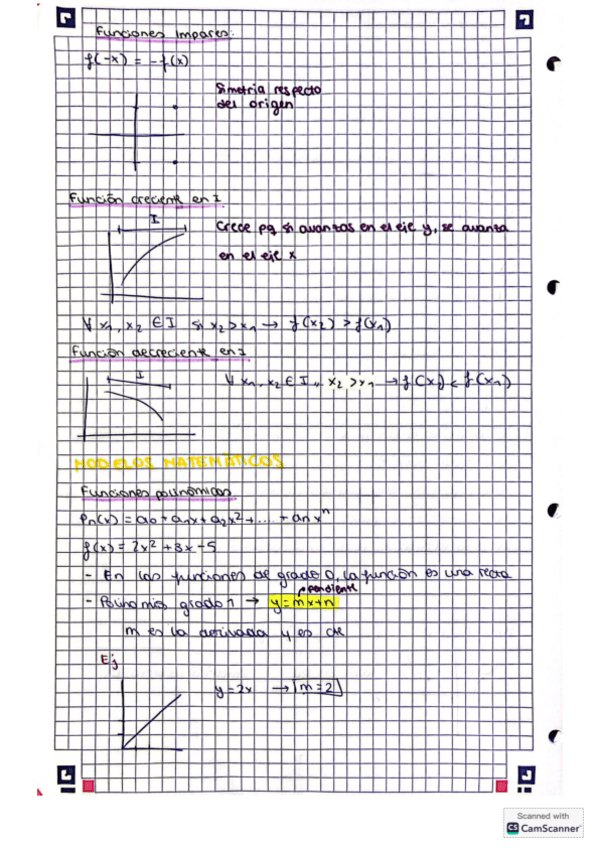 Funciones Impares:
f(-x) = -f(x)
Simetria respecto
del origen
Función creciente en I
I
Crece pq si avanzas en el eje y, se avanza
en el eje x
∀ x₁, x₂ ∈ I si x₂ > x₁ → f(x₂) > f(x₁)
Función decreciente en I
I
∀ x₁, x₂ ∈ I ,, x₂ > x₁ → f(x₂) < f(x₁)
MODELOS MATEMÁTICOS
Funciones polinómicas
Pn(x) = a₀ + a₁x + a₂x² + .... + anxⁿ
f(x) = 2x² + 3x - 5
- En las funciones de grado 0, la función es una recta
pendiente
- Polinomios grado 1 → y = mx + n
m es la derivada y es
Ej
y = 2x → m = 2
Scanned with
CS CamScanner